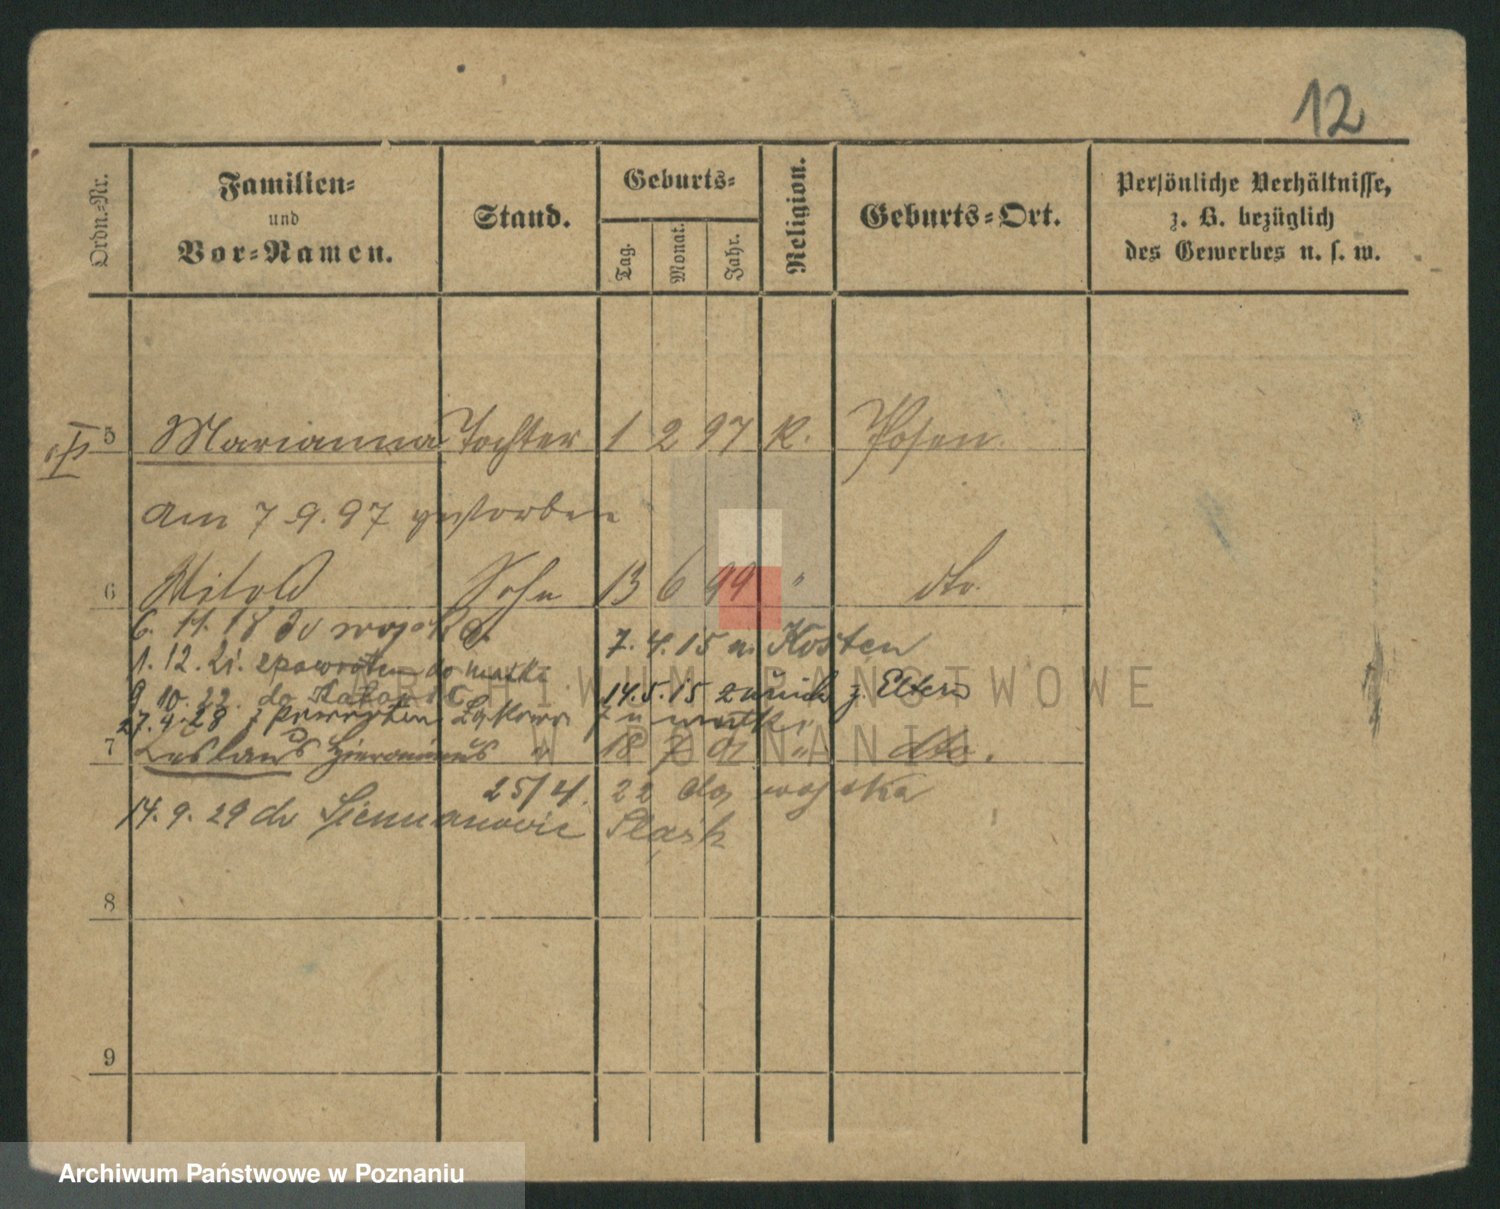 12
Ordn.-Nr.
Familien-
und
Vor-Namen.
Stand.
Geburts-
Tag.
Monat.
Jahr.
Religion.
Geburts-Ort.
Persönliche Verhältnisse,
z. B. bezüglich
des Gewerbes u. s. w.
5 Marianna Tochter 1 2 97 K. Posen.
am 7.9.97 gestorben
6 Witold Sohn 13 6 99 " dto.
6. 11. 18 do wojska.
7.4.15 n. Kosten
1. 12. 21. z powrotem do matki
9 10. 22. do
14.5.15 zurück z. Eltern
27.4.28 z powrotem
7 Hieronimus " 18 " dto.
25/4. 22 do wojska
14. 9. 29 do Siemianowic Śląsk
8
9
ARCHIWUM PAŃSTWOWE
W POZNANIU
Archiwum Państwowe w Poznaniu